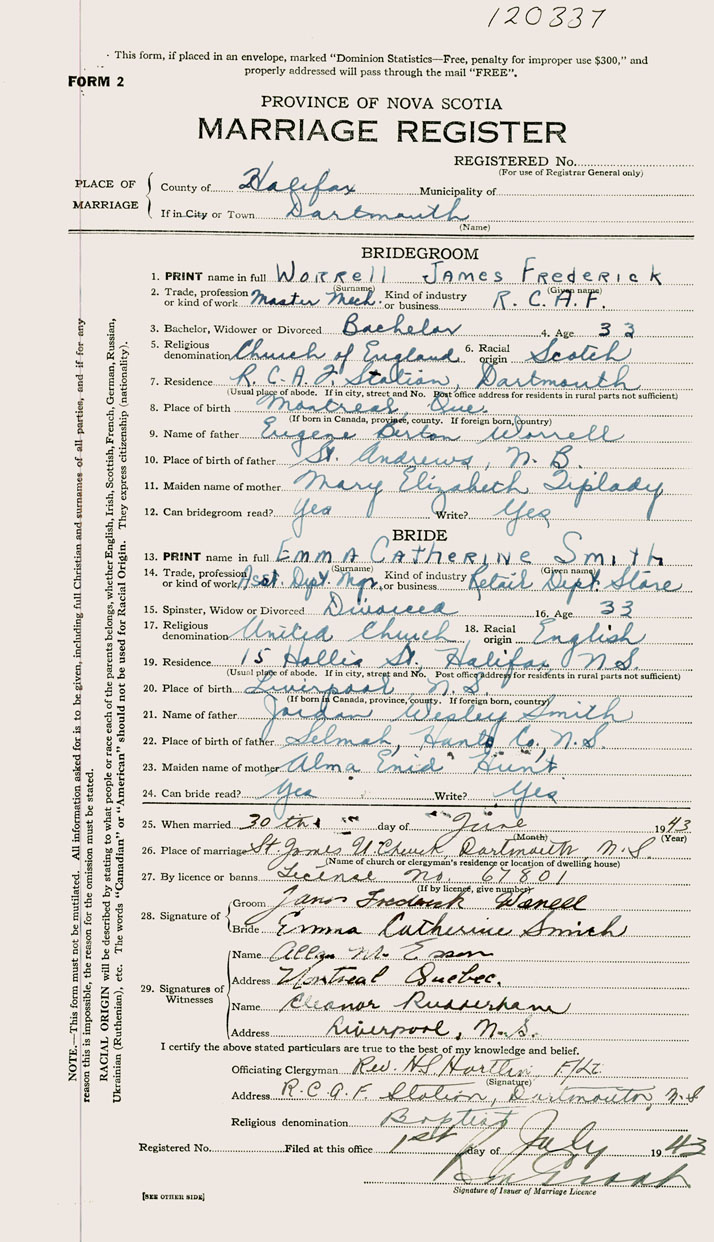 120337
This form, if placed in an envelope, marked "Dominion Statistics—Free, penalty for improper use $300," and
properly addressed will pass through the mail "FREE".
FORM 2
PROVINCE OF NOVA SCOTIA
MARRIAGE REGISTER
REGISTERED No.
(For use of Registrar General only)
PLACE OF MARRIAGE
County of Halifax Municipality of
If in City or Town Dartmouth
(Name)
BRIDEGROOM
1. PRINT name in full WORRELL JAMES FREDERICK
(Surname) (Given name)
2. Trade, profession or kind of work Master Mech. Kind of industry or business R.C.A.F.
3. Bachelor, Widower or Divorced Bachelor 4. Age 33
5. Religious denomination Church of England 6. Racial origin Scotch
7. Residence R.C.A.F. Station, Dartmouth
(Usual place of abode. If in city, street and No. Post office address for residents in rural parts not sufficient)
8. Place of birth Montreal, Que.
(If born in Canada, province, county. If foreign born, country)
9. Name of father Eugene Berton Worrell
10. Place of birth of father St. Andrews, N.B.
11. Maiden name of mother Mary Elizabeth Tiplady
12. Can bridegroom read? Yes Write? Yes
BRIDE
13. PRINT name in full EMMA CATHERINE SMITH
(Surname) (Given name)
14. Trade, profession or kind of work Asst. Dept. Mgr. Kind of industry or business Retail Dept. Store
15. Spinster, Widow or Divorced Divorced 16. Age 33
17. Religious denomination United Church 18. Racial origin English
19. Residence 15 Hollis St., Halifax N.S.
(Usual place of abode. If in city, street and No. Post office address for residents in rural parts not sufficient)
20. Place of birth Liverpool, N.S.
(If born in Canada, province, county. If foreign born, country)
21. Name of father Jordan Wesley Smith
22. Place of birth of father Selmah, Hants Co., N.S.
23. Maiden name of mother Alma Enid Hunt
24. Can bride read? Yes Write? Yes
25. When married 30th day of June 1943
(Month) (Year)
26. Place of marriage St. James U. Church Dartmouth, N.S.
(Name of church or clergyman's residence or location of dwelling house)
27. By licence or banns License no. 67801
(If by licence, give number)
28. Signature of
Groom James Frederick Worrell
Bride Emma Catherine Smith
29. Signatures of Witnesses
Name M. Esson
Address Montreal Quebec.
Name Eleanor
Address Liverpool, N.S.
I certify the above stated particulars are true to the best of my knowledge and belief.
Officiating Clergyman Rev. H.S. Hartlin F/Lt.
(Signature)
Address R.C.A.F. Station, Dartmouth, N.S
Religious denomination Baptist
Registered No. Filed at this office 1st day of July 1943
Signature of Issuer of Marriage Licence
[SEE OTHER SIDE]
NOTE.—This form must not be mutilated. All information asked for is to be given, including full Christian and surnames of all parties, and if for any
reason this is impossible, the reason for the omission must be stated.
RACIAL ORIGIN will be described by stating to what people or race each of the parents belongs, whether English, Irish, Scottish, French, German, Russian,
Ukrainian (Ruthenian), etc. The words "Canadian" or "American" should not be used for Racial Origin. They express citizenship (nationality).